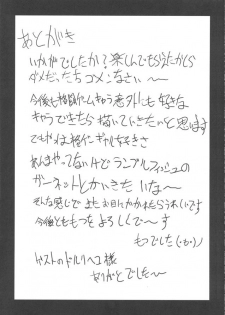 あとがき
いかがでしたか?楽しんでもらえたかしら
ダメだったらゴメンなさい~
今後も格闘ゲームキャラ意外にも好きな
キャラできたら描いていきたいと思います
でもやっぱ格ゲーギャルをさ
あんまやってないけどランブルフィッシュの
ガーネットとかかきたいな~
そんな感じでまたお目にかかれたらうれしいです
今後とももつをよろしくで~す
もつでした
ゲストのドルリヘコ様
ありがとでした~